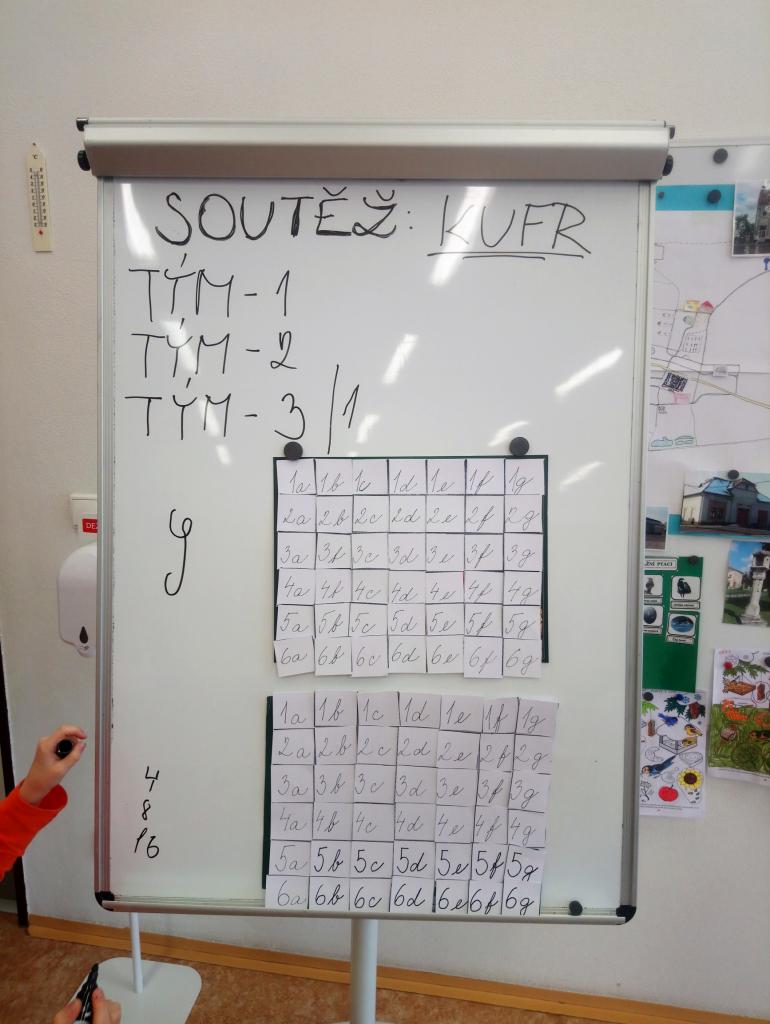 SOUTĚŽ: KUFR
TÝM - 1
TÝM - 2
TÝM - 3 / 1
1a 1b 1c 1d 1e 1f 1g
2a 2b 2c 2d 2e 2f 2g
3a 3b 3c 3d 3e 3f 3g
4a 4b 4c 4d 4e 4f 4g
5a 5b 5c 5d 5e 5f 5g
6a 6b 6c 6d 6e 6f 6g
y
1a 1b 1c 1d 1e 1f 1g
2a 2b 2c 2d 2e 2f 2g
3a 3b 3c 3d 3e 3f 3g
4a 4b 4c 4d 4e 4f 4g
5a 5b 5c 5d 5e 5f 5g
6a 6b 6c 6d 6e 6f 6g
4
8
16
°C
PTÁCI